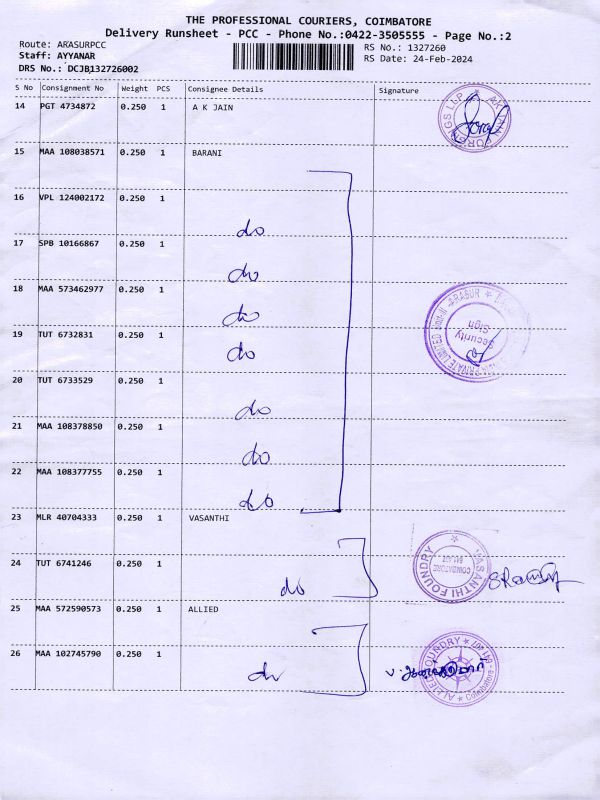 THE PROFESSIONAL COURIERS, COIMBATORE
Delivery Runsheet - PCC - Phone No.:0422-3505555 - Page No.:2
Route: ARASURPCC
RS No.: 1327260
Staff: AYYANAR
RS Date: 24-Feb-2024
DRS No.: DCJB132726002
S No Consignment No Weight PCS Consignee Details Signature
14 PGT 4734872 0.250 1 A K JAIN
15 MAA 108038571 0.250 1 BARANI
16 VPL 124002172 0.250 1
do
17 SPB 10166867 0.250 1
do
18 MAA 573462977 0.250 1
do
19 TUT 6732831 0.250 1
do
20 TUT 6733529 0.250 1
do
21 MAA 108378850 0.250 1
do
22 MAA 108377755 0.250 1
do
23 MLR 40704333 0.250 1 VASANTHI
VASANTHI FOUNDRY
COIMBATORE
24 TUT 6741246 0.250 1
do
25 MAA 572590573 0.250 1 ALLIED
ALLIED FOUNDRY
Coimbatore - 641 407
26 MAA 102745790 0.250 1
do
PRIVATE LIMITED Unit-II ARASUR
Security Sign